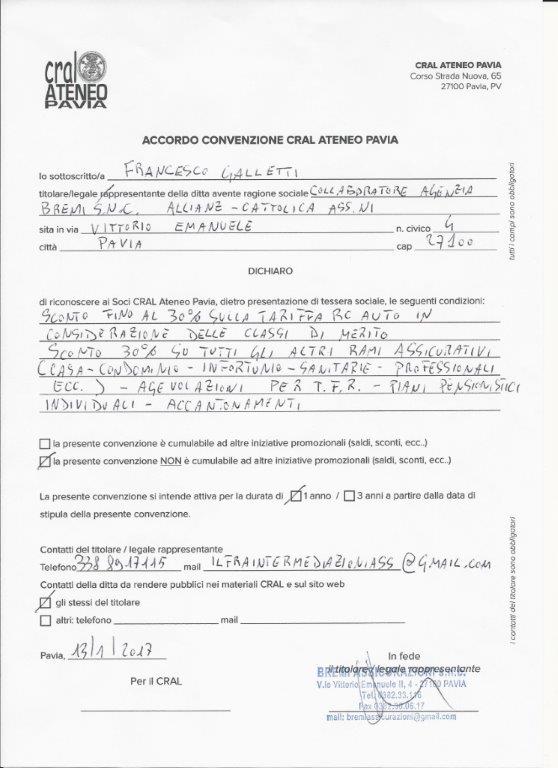 cral
ATENEO
PAVIA
CRAL ATENEO PAVIA
Corso Strada Nuova, 65
27100 Pavia, PV
ACCORDO CONVENZIONE CRAL ATENEO PAVIA
Io sottoscritto/a FRANCESCO GALLETTI
titolare/legale rappresentante della ditta avente ragione sociale COLLABORATORE AGENZIA
BREMI S.N.C. ALLIANZ - CATTOLICA ASS.NI
sita in via VITTORIO EMANUELE n. civico 4
città PAVIA cap 27100
tutti i campi sono obbligatori
DICHIARO
di riconoscere ai Soci CRAL Ateneo Pavia, dietro presentazione di tessera sociale, le seguenti condizioni:
SCONTO FINO AL 30% SULLA TARIFFA RC AUTO IN
CONSIDERAZIONE DELLE CLASSI DI MERITO
SCONTO 30% SU TUTTI GLI ALTRI RAMI ASSICURATIVI
(CASA - CONDOMINIO - INFORTUNIO - SANITARIE - PROFESSIONALI
ECC.) - AGEVOLAZIONI PER T.F.R. - PIANI PENSIONISTICI
INDIVIDUALI - ACCANTONAMENTI
la presente convenzione è cumulabile ad altre iniziative promozionali (saldi, sconti, ecc..)
la presente convenzione NON è cumulabile ad altre iniziative promozionali (saldi, sconti, ecc..)
La presente convenzione si intende attiva per la durata di 1 anno / 3 anni a partire dalla data di
stipula della presente convenzione.
Contatti del titolare / legale rappresentante
Telefono 338 8917115 mail ILTRAINTERMEDIAZIONIASS@GMAIL.COM
Contatti della ditta da rendere pubblici nei materiali CRAL e sul sito web
gli stessi del titolare
altri: telefono mail
i contatti del titolare sono obbligatori
Pavia, 13/1/2017
In fede
il titolare / legale rappresentante
Per il CRAL
BREMI ASSICURAZIONI S.N.C.
V.le Vittorio Emanuele II, 4 - 27100 PAVIA
Tel. 0382.33.
Fax 0382.
mail: bremiassicurazioni@gmail.com